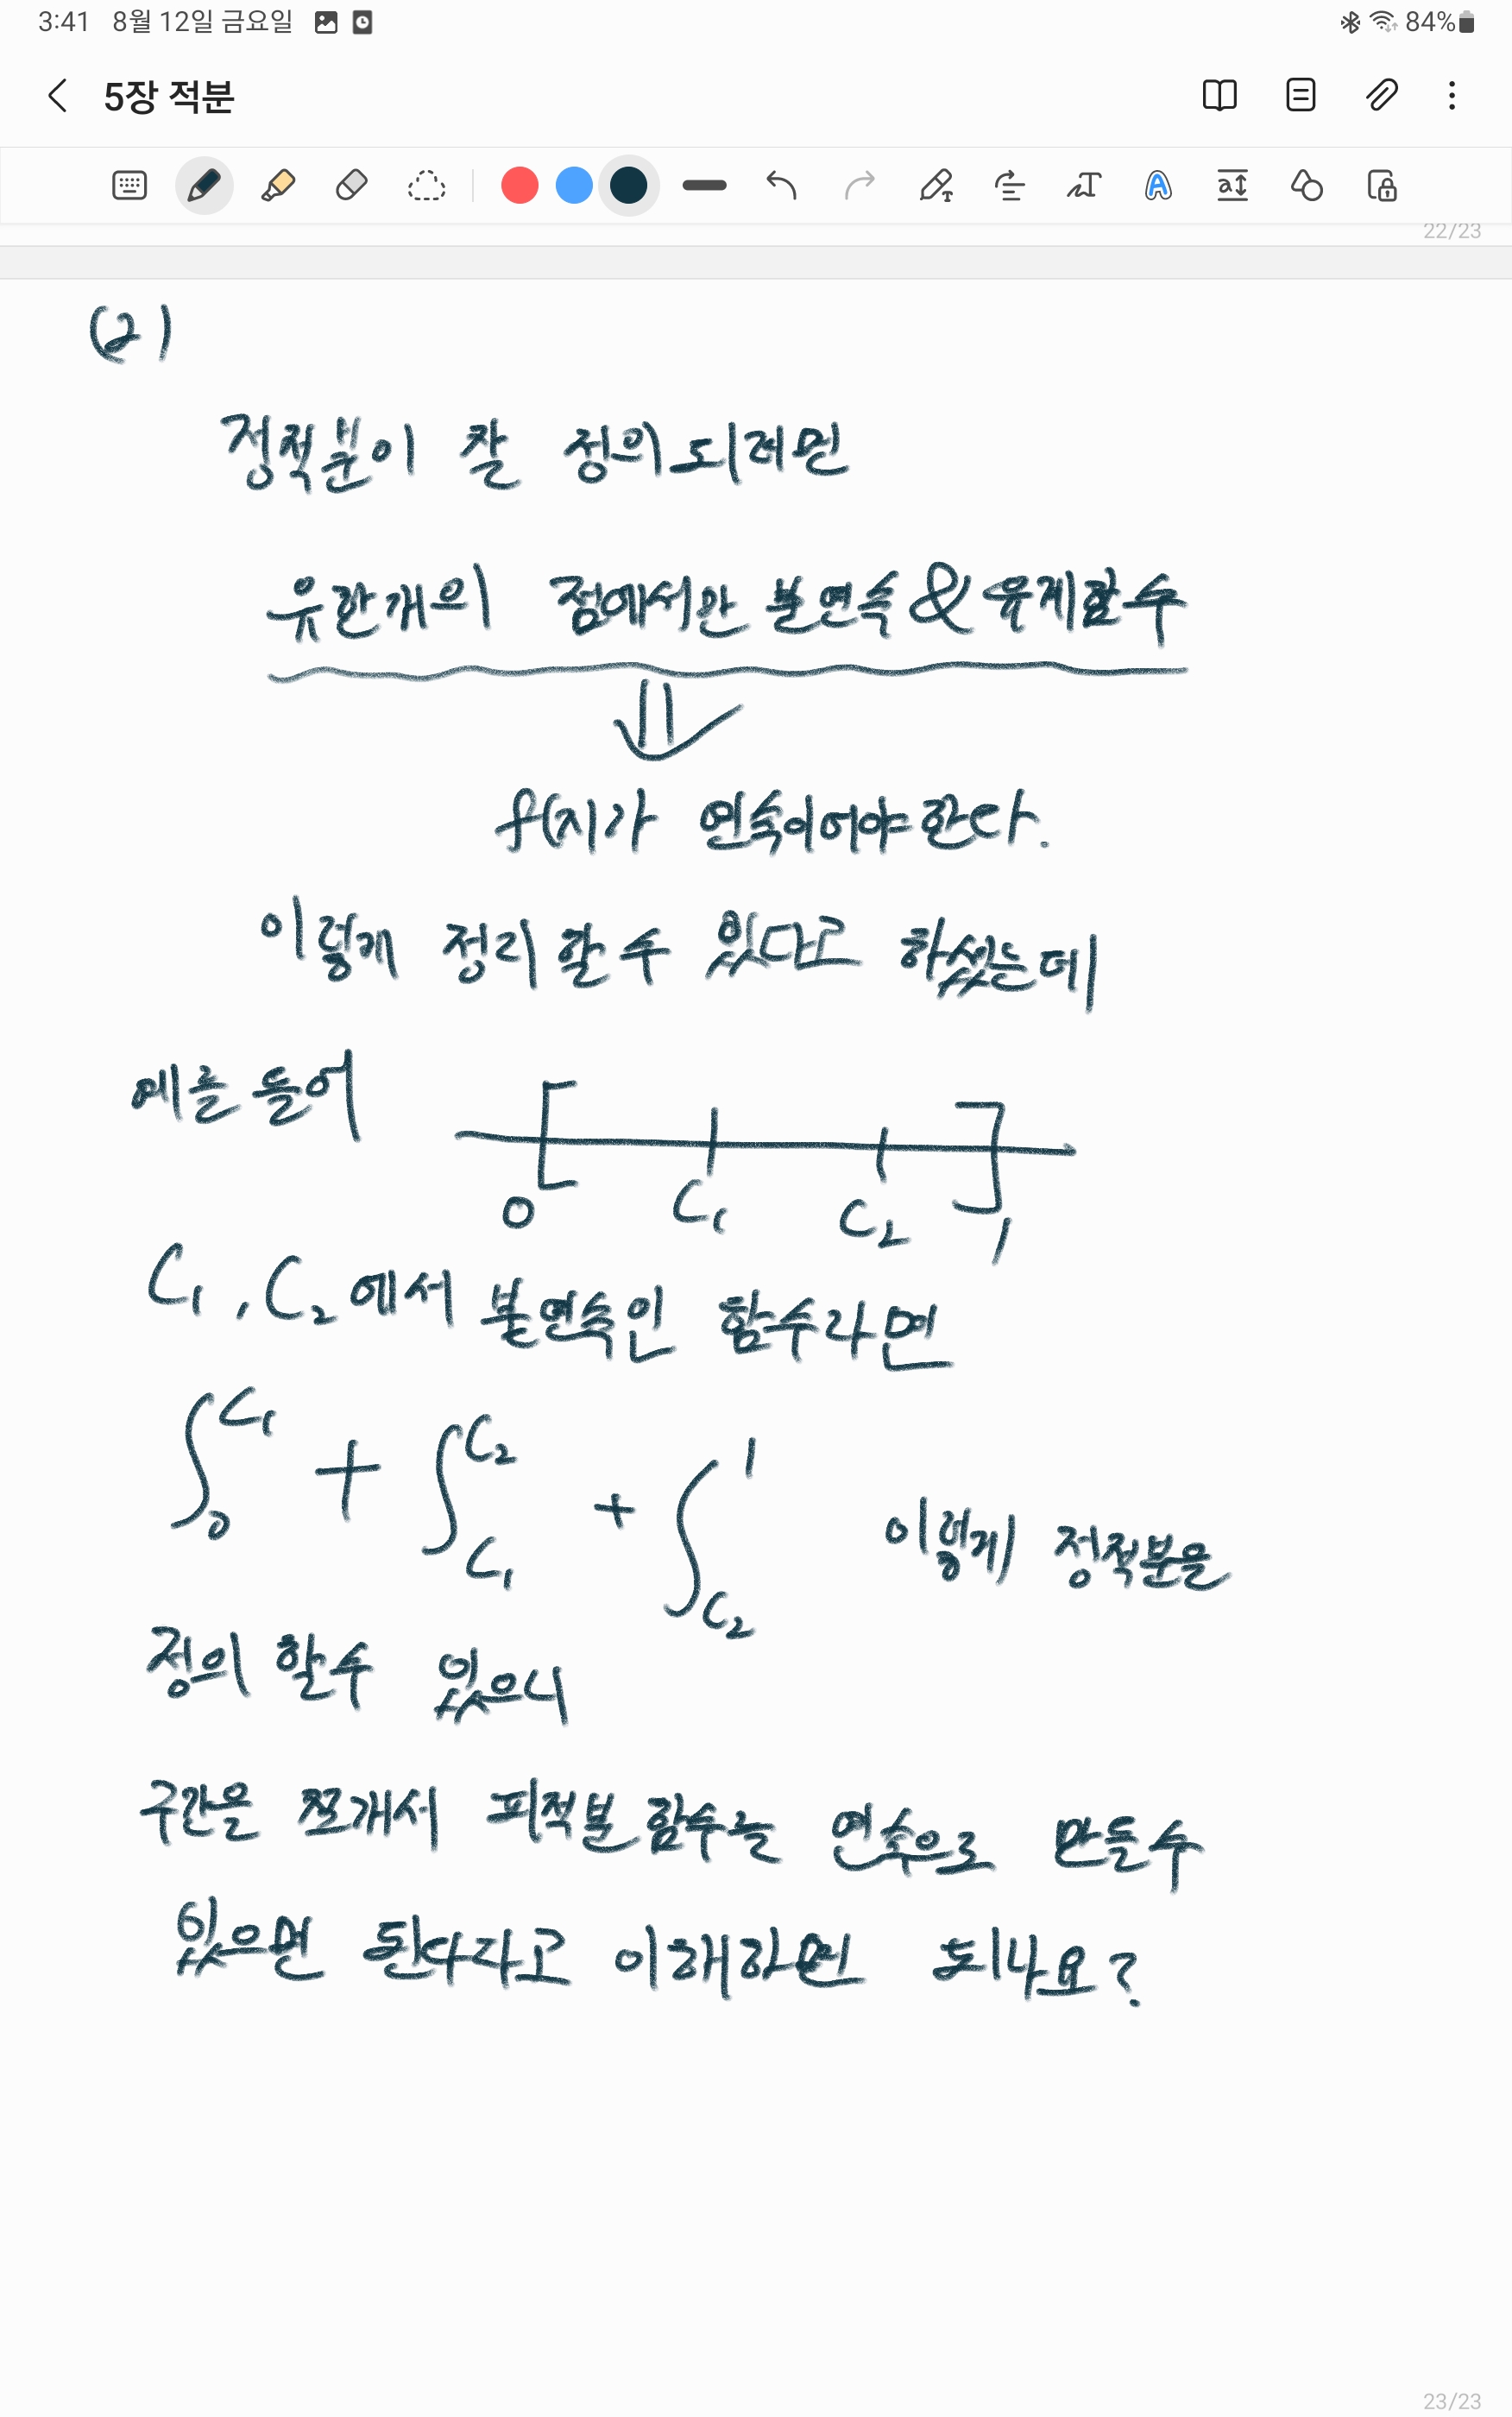 3:41 8월 12일 금요일 84%
5장 적분
22/23
(2)
정적분이 잘 정의되려면
유한개의 점에서만 불연속 & 유계함수
f(x)가 연속이어야 한다.
이렇게 정리할 수 있다고 하셨는데
예를 들어
0 C₁ C₂ 1
C₁, C₂에서 불연속인 함수라면
∫₀^C₁ + ∫_C₁^C₂ + ∫_C₂^1 이렇게 정적분을
정의 할수 있으니
구간을 쪼개서 피적분 함수를 연속으로 만들수
있으면 된다라고 이해하면 되나요?
23/23